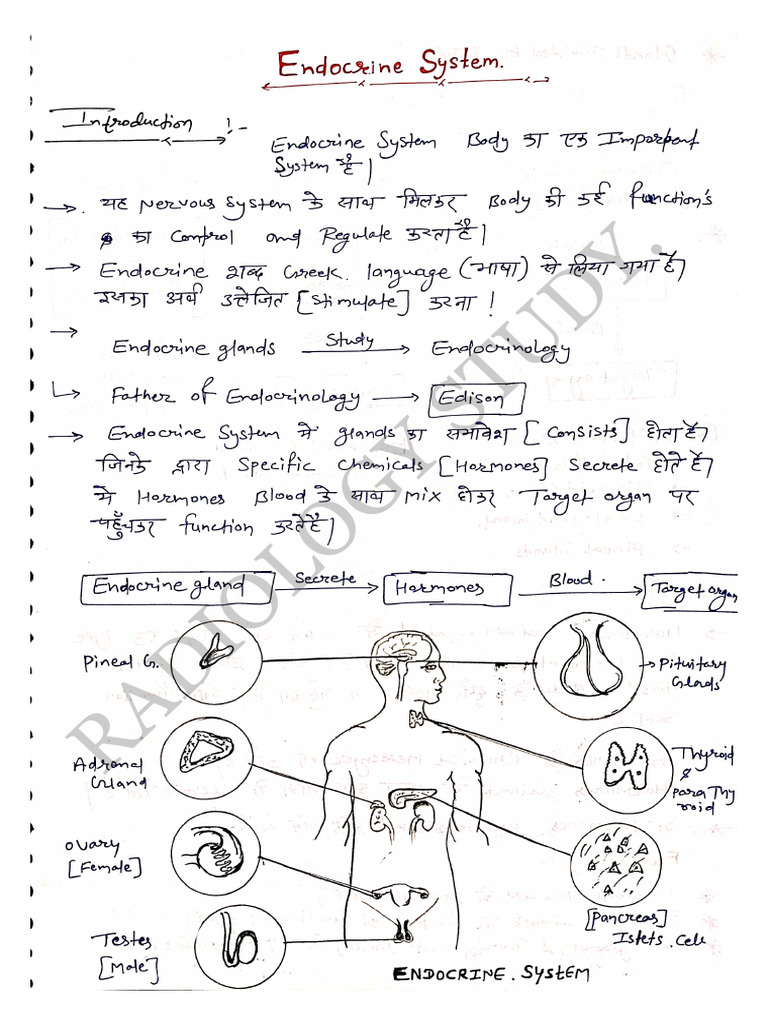 Endocrine System.
Introduction !-
Endocrine System Body का एक Imparpent
System है|
→ यह Nervous System के साथ मिलकर Body की कई function's
का Control and Regulate करता है|
→ Endocrine शब्द Greek. language (भाषा) से लिया गया है|
इसका अर्थ उत्तेजित [Stimulate] करना !
→ Endocrine glands Study → Endocrinology
↳ Father of Endocrinology → Edison
→ Endocrine System में glands का समावेश [Consists] होता है|
जिनके द्वारा Specific Chemicals [Hormones] Secrete होते हैं|
ये Hormones Blood के साथ mix होकर Target organ पर
पहुँचकर function करते है|
Endocrine gland Secrete → Hormones Blood. → Target organ
Pineal G.
Pituitary
Glads
Adrenal
Gland
Thyroid
&
para Thy
roid
Ovary
[Female]
[Pancreas]
Istets. Cell
Testes
[Male]
ENDOCRINE. SYSTEM
RADIOLOGY STUDY.